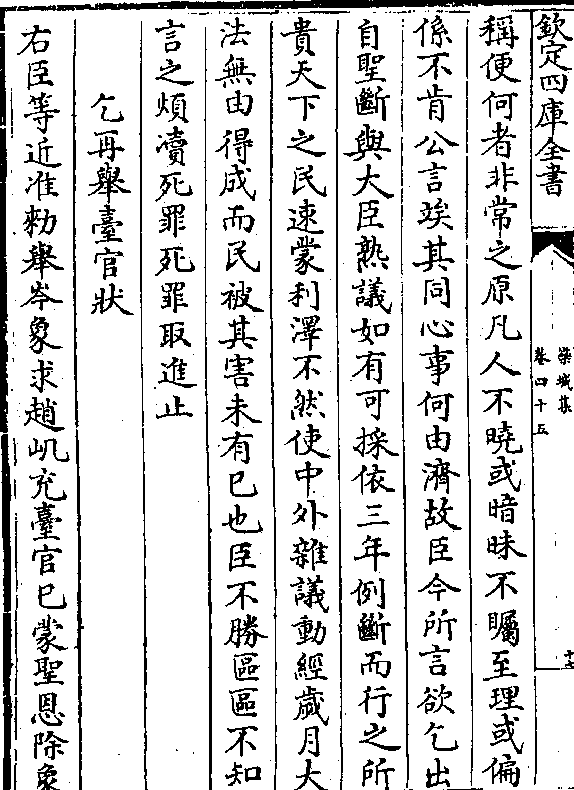 欽定四庫全書
欒城集
卷四十五
十七
稱便何者非常之原凡人不曉或暗昧不矚至理或偏
係不肯公言竢其同心事何由濟故臣今所言欲乞出
自聖斷與大臣熟議如有可採依三年例斷而行之所
貴天下之民速蒙利澤不然使中外雜議動經歲月大
法無由得成而民被其害未有已也臣不勝區區不知
言之煩瀆死罪死罪取進止
乞再舉臺官狀
右臣等近准勑舉岑象求趙屼充臺官已蒙聖恩除象